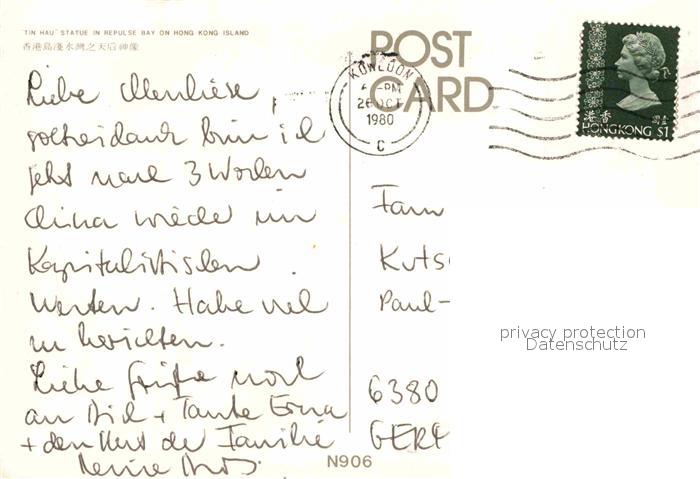 "TIN HAU" STATUE IN REPULSE BAY ON HONG KONG ISLAND
香港島淺水灣之天后神像
POST CARD
KOWLOON
PM
26 OCT
1980
C
香港
壹圓
HONG KONG $1
Liebe
gottseidank bin ich
jetzt nach 3 Wochen
China wieder im
Kapitalistischen
Westen. Habe viel
zu berichten.
Liebe Grüße noch
an Dich + Tante Erna
+ den Rest der Familie
Deine
Fam
Kuts
Paul-
6380
privacy protection
Datenschutz
N906